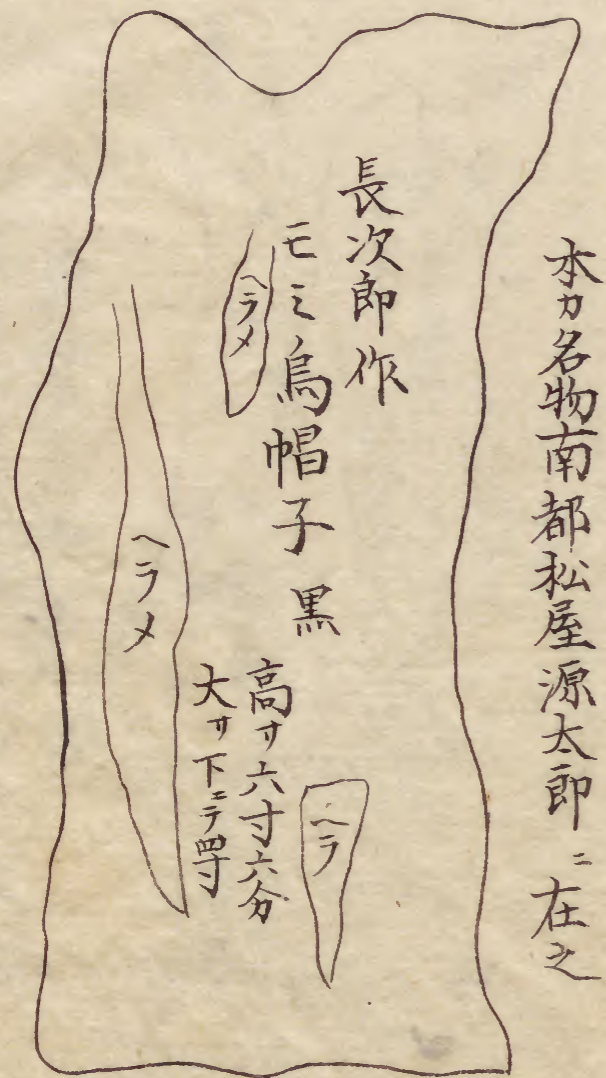 本カ名物南都松屋源太郎ニ在之
長次郎作
モミ烏帽子 黒
ヘラメ
高サ六寸六分
大サ下ニテ四寸
ヘラ
ヘラメ